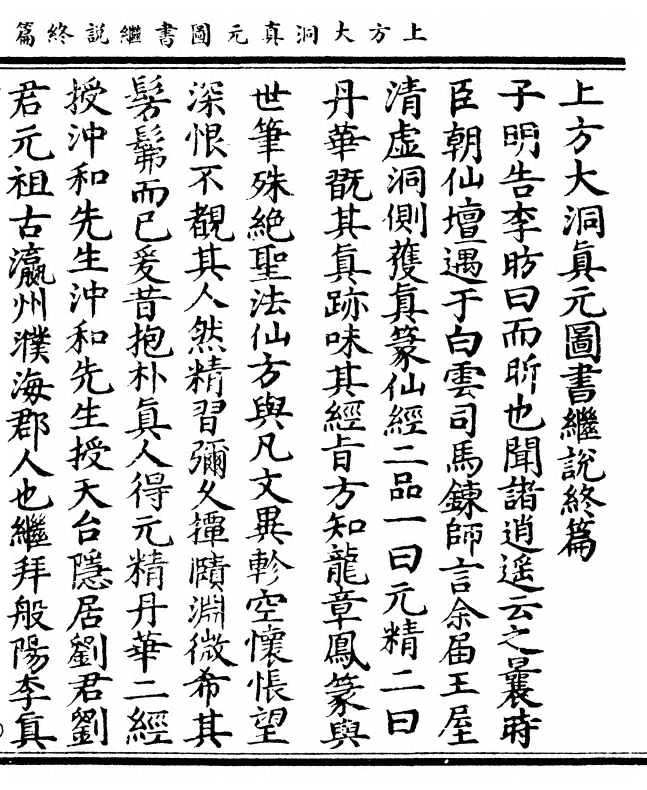 上方大洞真元圖書繼說終篇
上方大洞眞元圖書繼說終篇
子明告李昉曰而昕也聞諸逍遥云之曩時
臣朝仙壇遇于白雲司馬鍊師言余届王屋
清虛洞側獲眞篆仙經二品一曰元精二曰
丹華翫其眞跡味其經旨方知龍章鳳篆與
世筆殊絕聖法仙方與凡文異軫空懷悵望
深恨不覩其人然精習彌久撢賾淵微希其
髣髴而已爰昔抱朴眞人得元精丹華二經
授沖和先生沖和先生授天台隱居劉君劉
君元祖古瀛州濮海郡人也繼拜般陽李眞